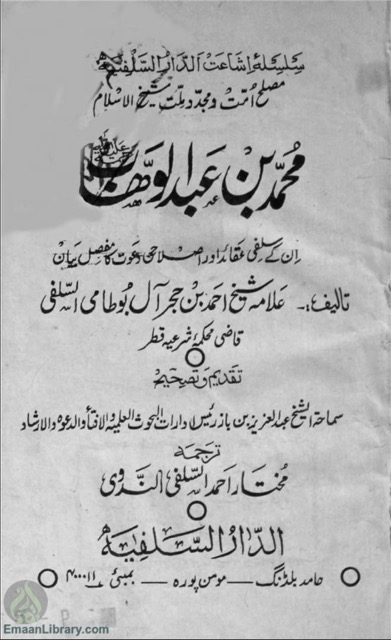 سلسلۂ اشاعت الدّارُ السّلفیہ
مصلح امّت و مجدّد ملّت شیخ الاسلام
محمّد بن عبد الوھّاب
ان کے سلفی عقائد اور اصلاحی دعوت کا مفصل بیان
تالیف:- علامہ شیخ احمد بن حجر آل بوطامی السّلفی
قاضی محکمۂ شرعیہ قطر
تقدیم و تصحیح
سماحۃ الشیخ عبد العزیز بن باز رئیس ادارات البحوث العلمیہ والافتأ والدعوہ والارشاد
ترجمہ
مُختار احمد السّلفی الندوی
الدّارُ السّلفیہ
حامد بلڈنگ — مومن پورہ — بمبئی ۴۰۰۰۱۱
EmaanLibrary.com